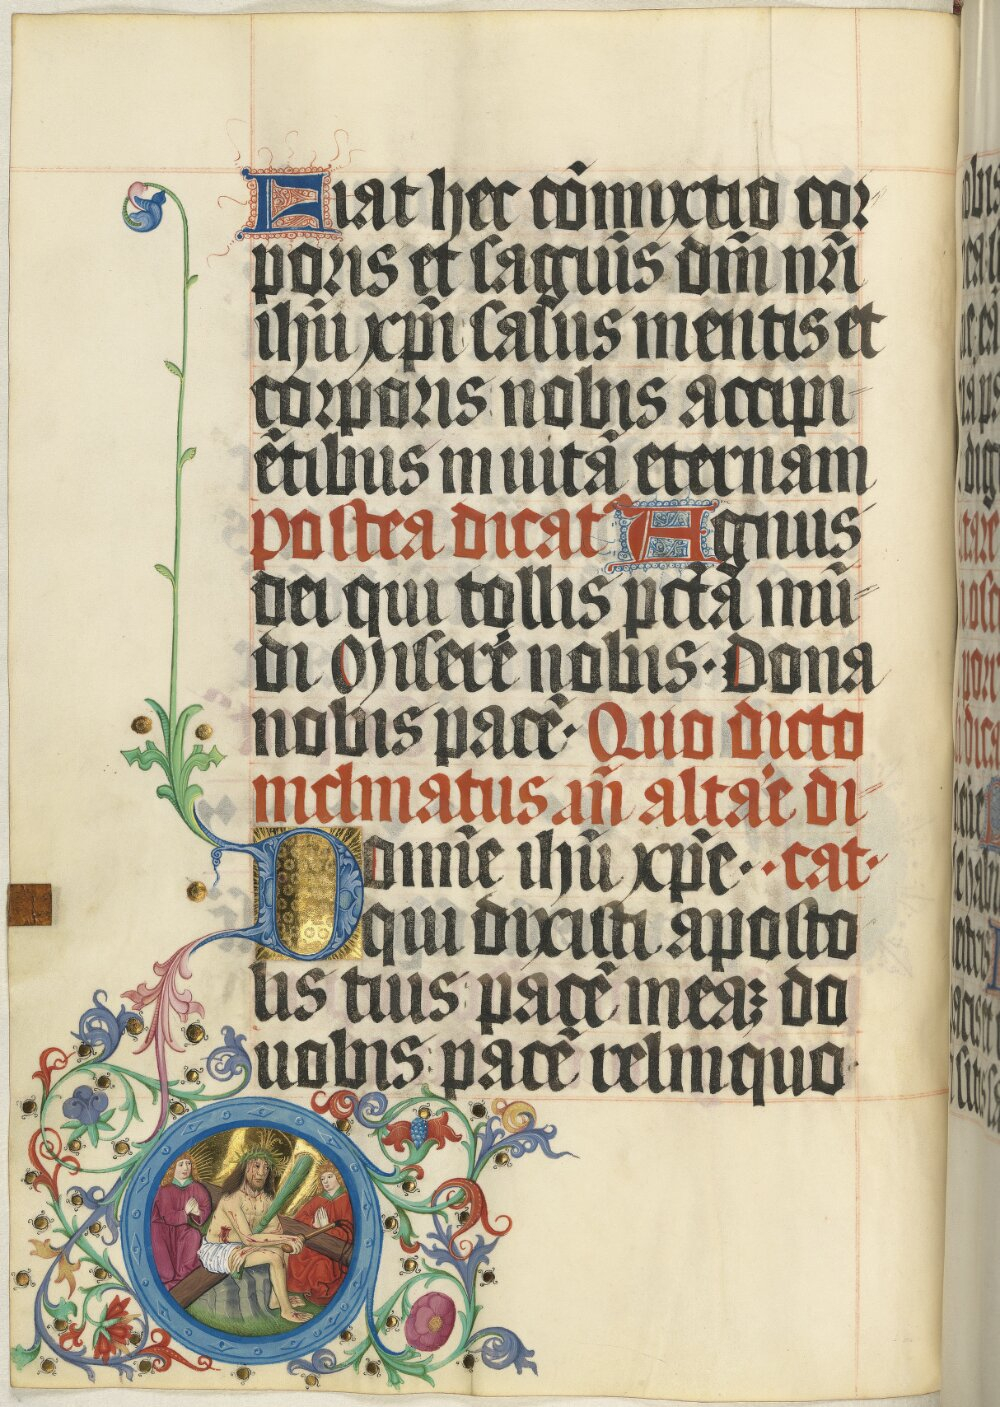 Fiat hec cōmixtio cor
poris et sāguīs dn̄i nr̄i
ihū xp̄i salus mentis et
corporis nobis accipi
ētibus in uitā eternam
postea dicat Agnus
dei qui tollis pctā mū
di Miserē nobis · Dona
nobis pacē · Quo dicto
inclinatus in̄ altaē di
Domīe ihū xp̄e · cat ·
qui dixisti aposto
lis tuis pacē meaʒ do
uobis pacē relinquo